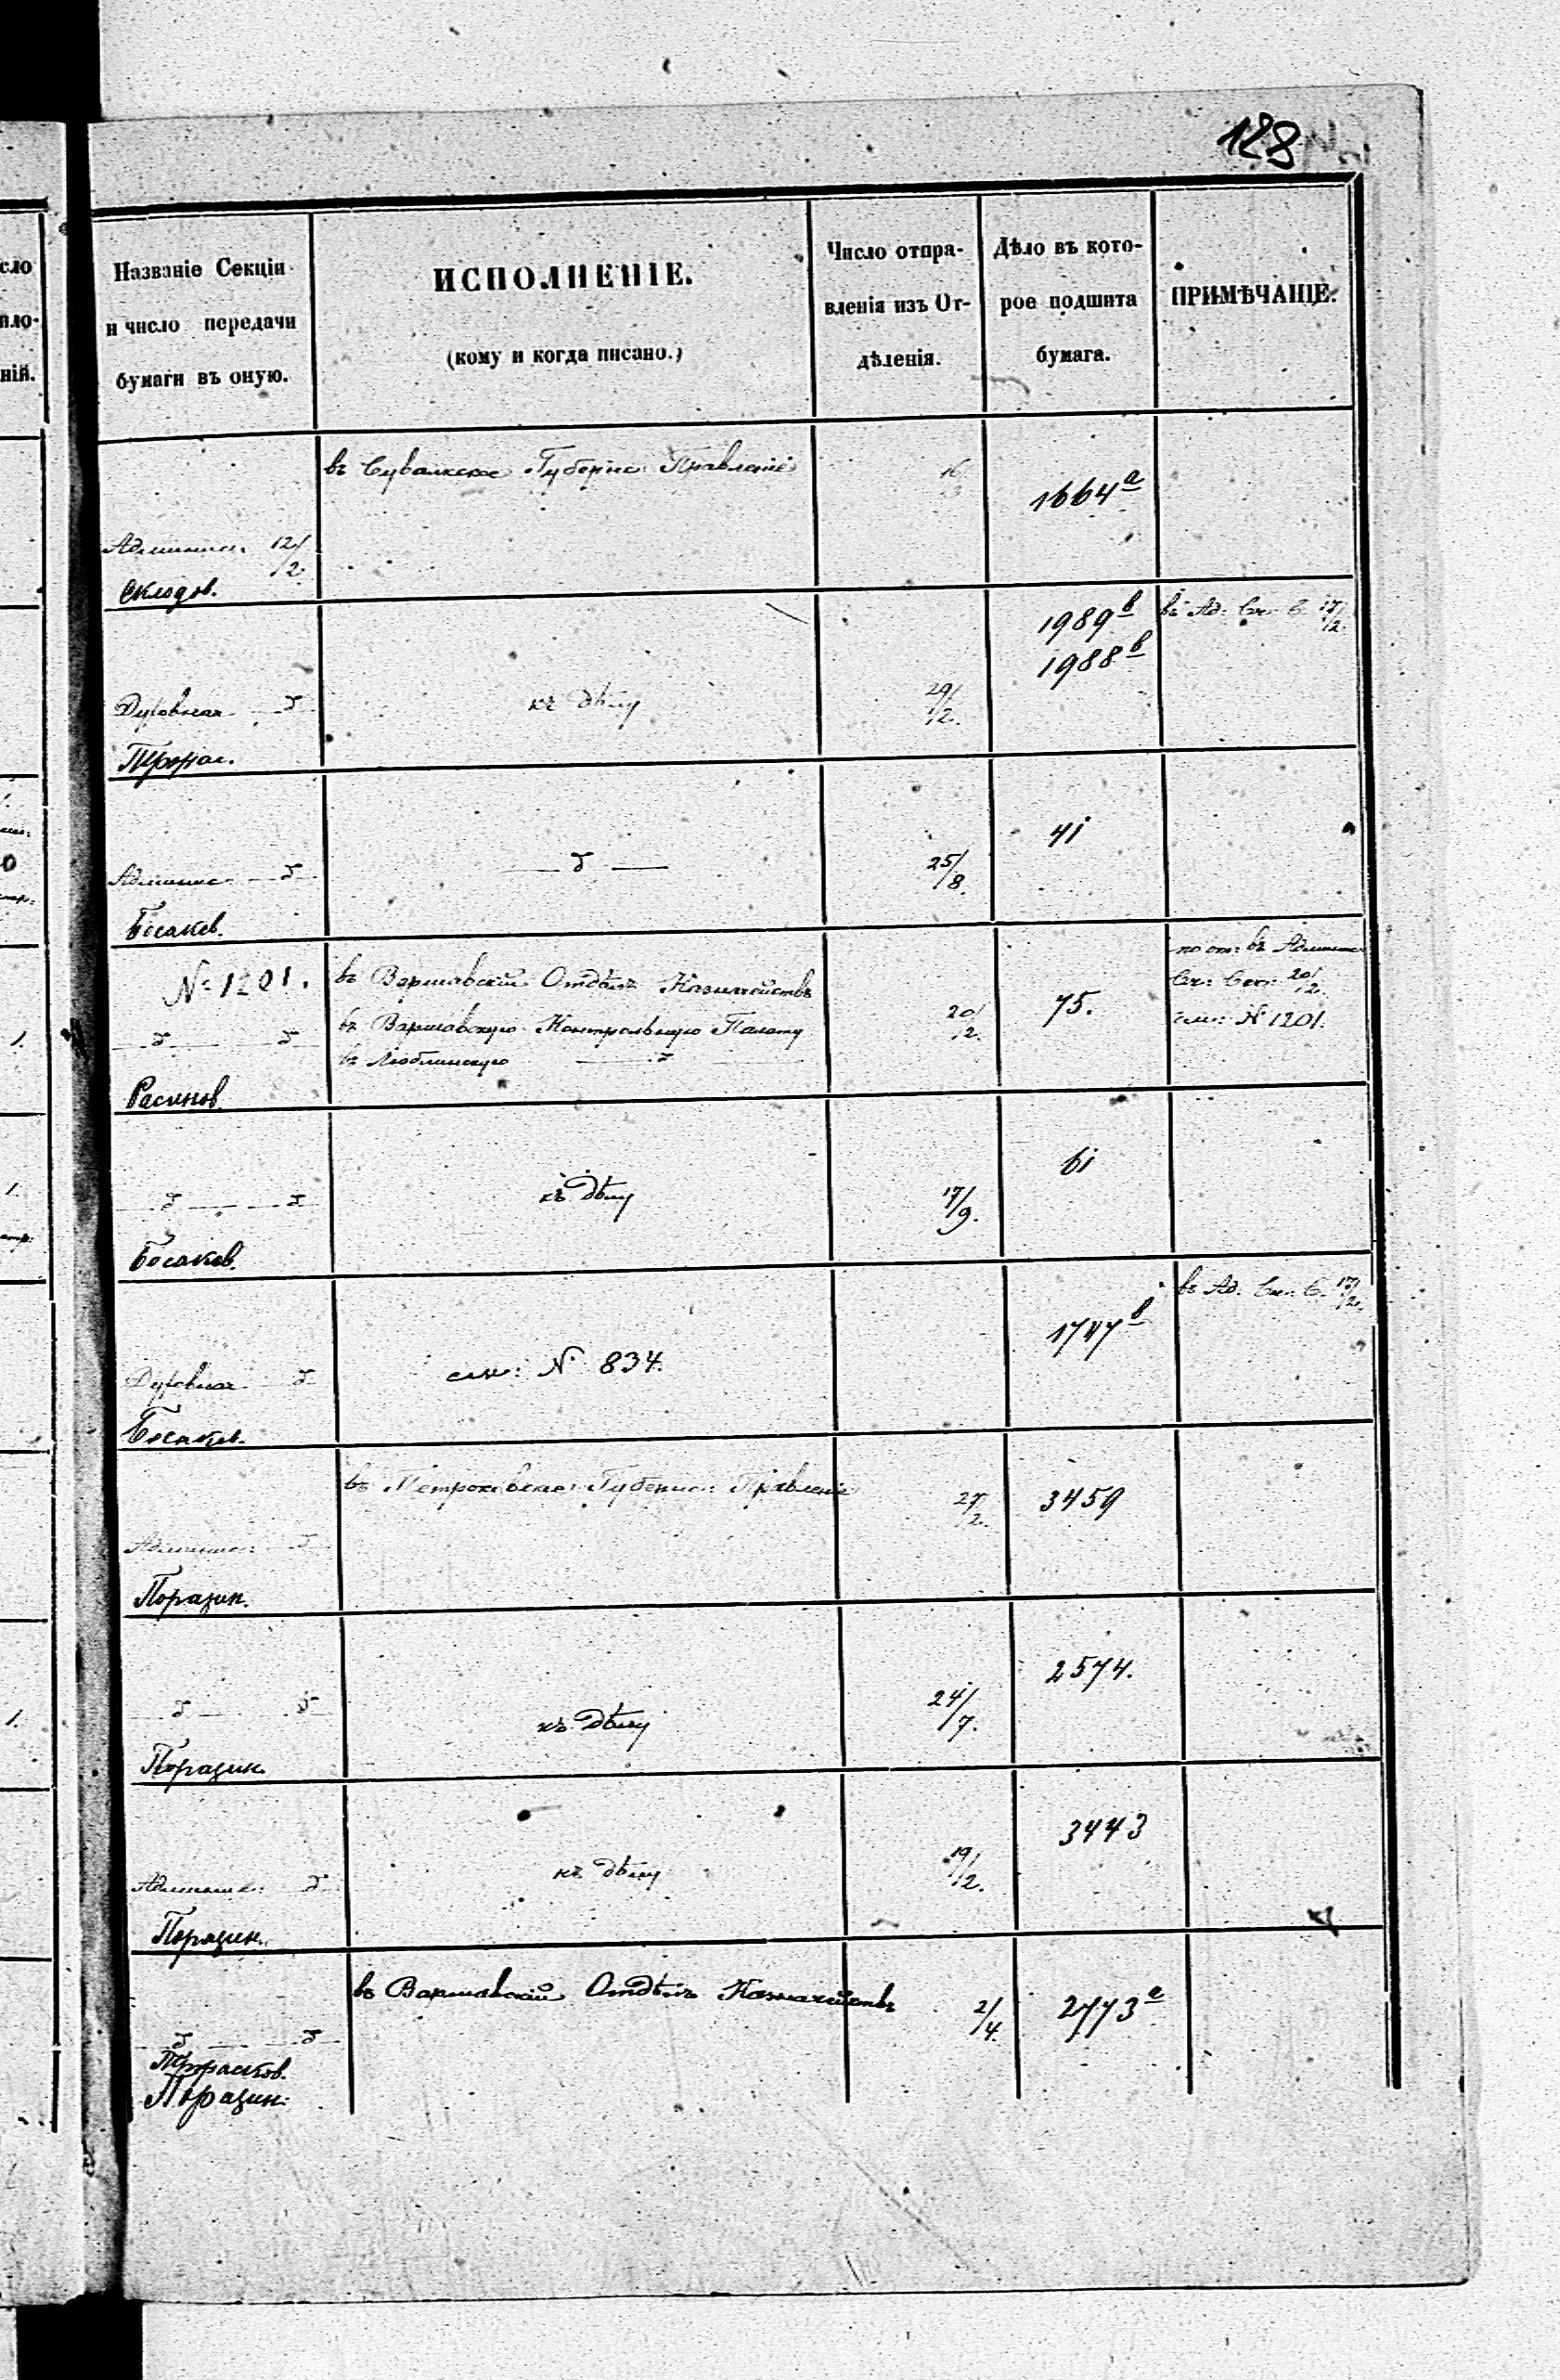 128
Названіе Секціи
и число передачи
бумаги въ оную.
ИСПОЛНЕНІЕ.
(кому и когда писано.)
Число отпра-
вленія изъ От-
дѣленія.
Дѣло въ кото-
рое подшита
бумага.
ПРИМѢЧАНІЕ.
въ Сувалкское Губернс: Правленіе
16/3
1664а
Админис: 12/2
Склодов.
1989в
въ Ад: Сч: С. 17/2.
1988в
Духовная
къ дѣлу
29/12.
41
Админис
25/8.
Босаков.
№ 1201.
въ Варшавскій Отдѣлъ Казначействъ
въ Варшавскую Контрольную Палату
въ Люблинскую
20/2.
75.
въ Админис
20/2.
см: № 1201.
Расинов.
къ дѣлу
17/9.
61
Босаков.
въ Ад. Сч: С. 17/2.
1747в
Духовная
см: № 834.
Босаков.
въ Петроковское Губернс: Правленіе
27/2.
3459
Админис:
Поразин.
2574.
къ дѣлу
24/7.
Поразин.
3443
Админис:
къ дѣлу
19/2.
Поразин.
въ Варшавскій Отдѣлъ Казначействъ
2/4.
2773а
Поразин.